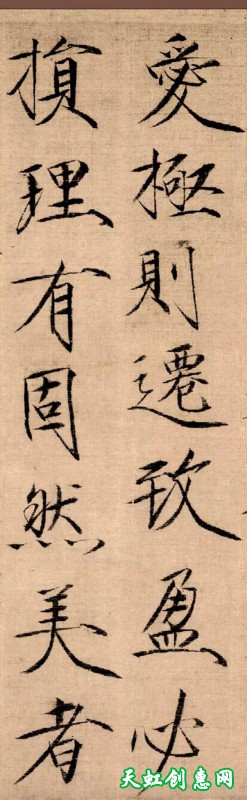 愛極則遷致盈必
損理有固然美者
天虹创惠网